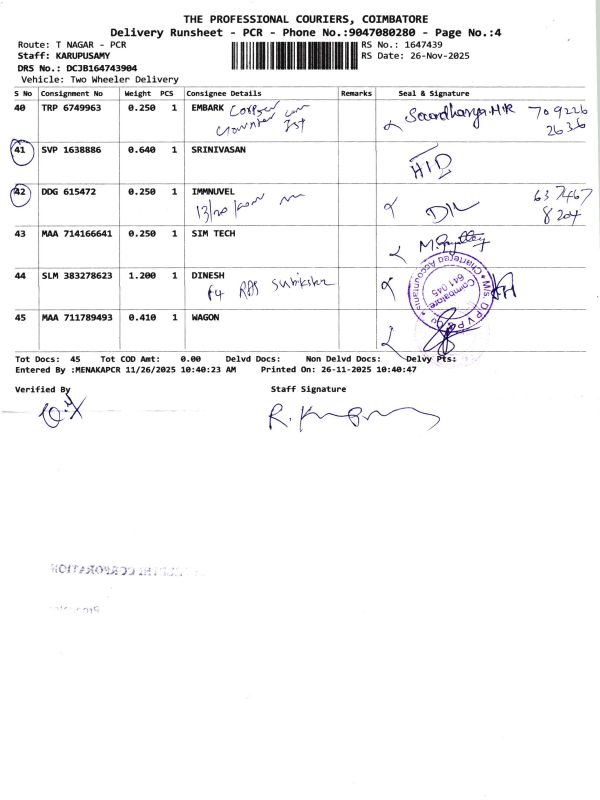 THE PROFESSIONAL COURIERS, COIMBATORE
Delivery Runsheet - PCR - Phone No.:9047080280 - Page No.:4
Route: T NAGAR - PCR RS No.: 1647439
Staff: KARUPUSAMY RS Date: 26-Nov-2025
DRS No.: DCJB164743904
Vehicle: Two Wheeler Delivery
S No Consignment No Weight PCS Consignee Details Remarks Seal & Signature
40 TRP 6749963 0.250 1 EMBARK
709226
2636
41 SVP 1638886 0.640 1 SRINIVASAN
HID
42 DDG 615472 0.250 1 IMMNUVEL
13/20
637467
8204
43 MAA 714166641 0.250 1 SIM TECH
44 SLM 383278623 1.200 1 DINESH
F4
Chartered Accountants
Coimbatore
641 045
45 MAA 711789493 0.410 1 WAGON
Tot Docs: 45 Tot COD Amt: 0.00 Delvd Docs: Non Delvd Docs: Delvy Pts:
Entered By :MENAKAPCR 11/26/2025 10:40:23 AM Printed On: 26-11-2025 10:40:47
Verified By Staff Signature
CORPORATION